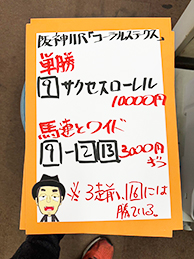 阪神11R「コーラルステークス」
単勝
9 サクセスローレル
10000円
馬連とワイド
9-12 13 3000円
ずつ
※3走前、16には
勝ている。